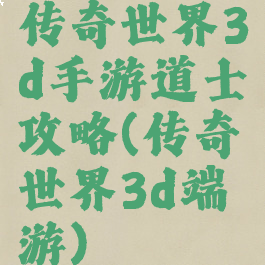 传奇世界3
d手游道士
攻略(传奇
世界3d端
游)